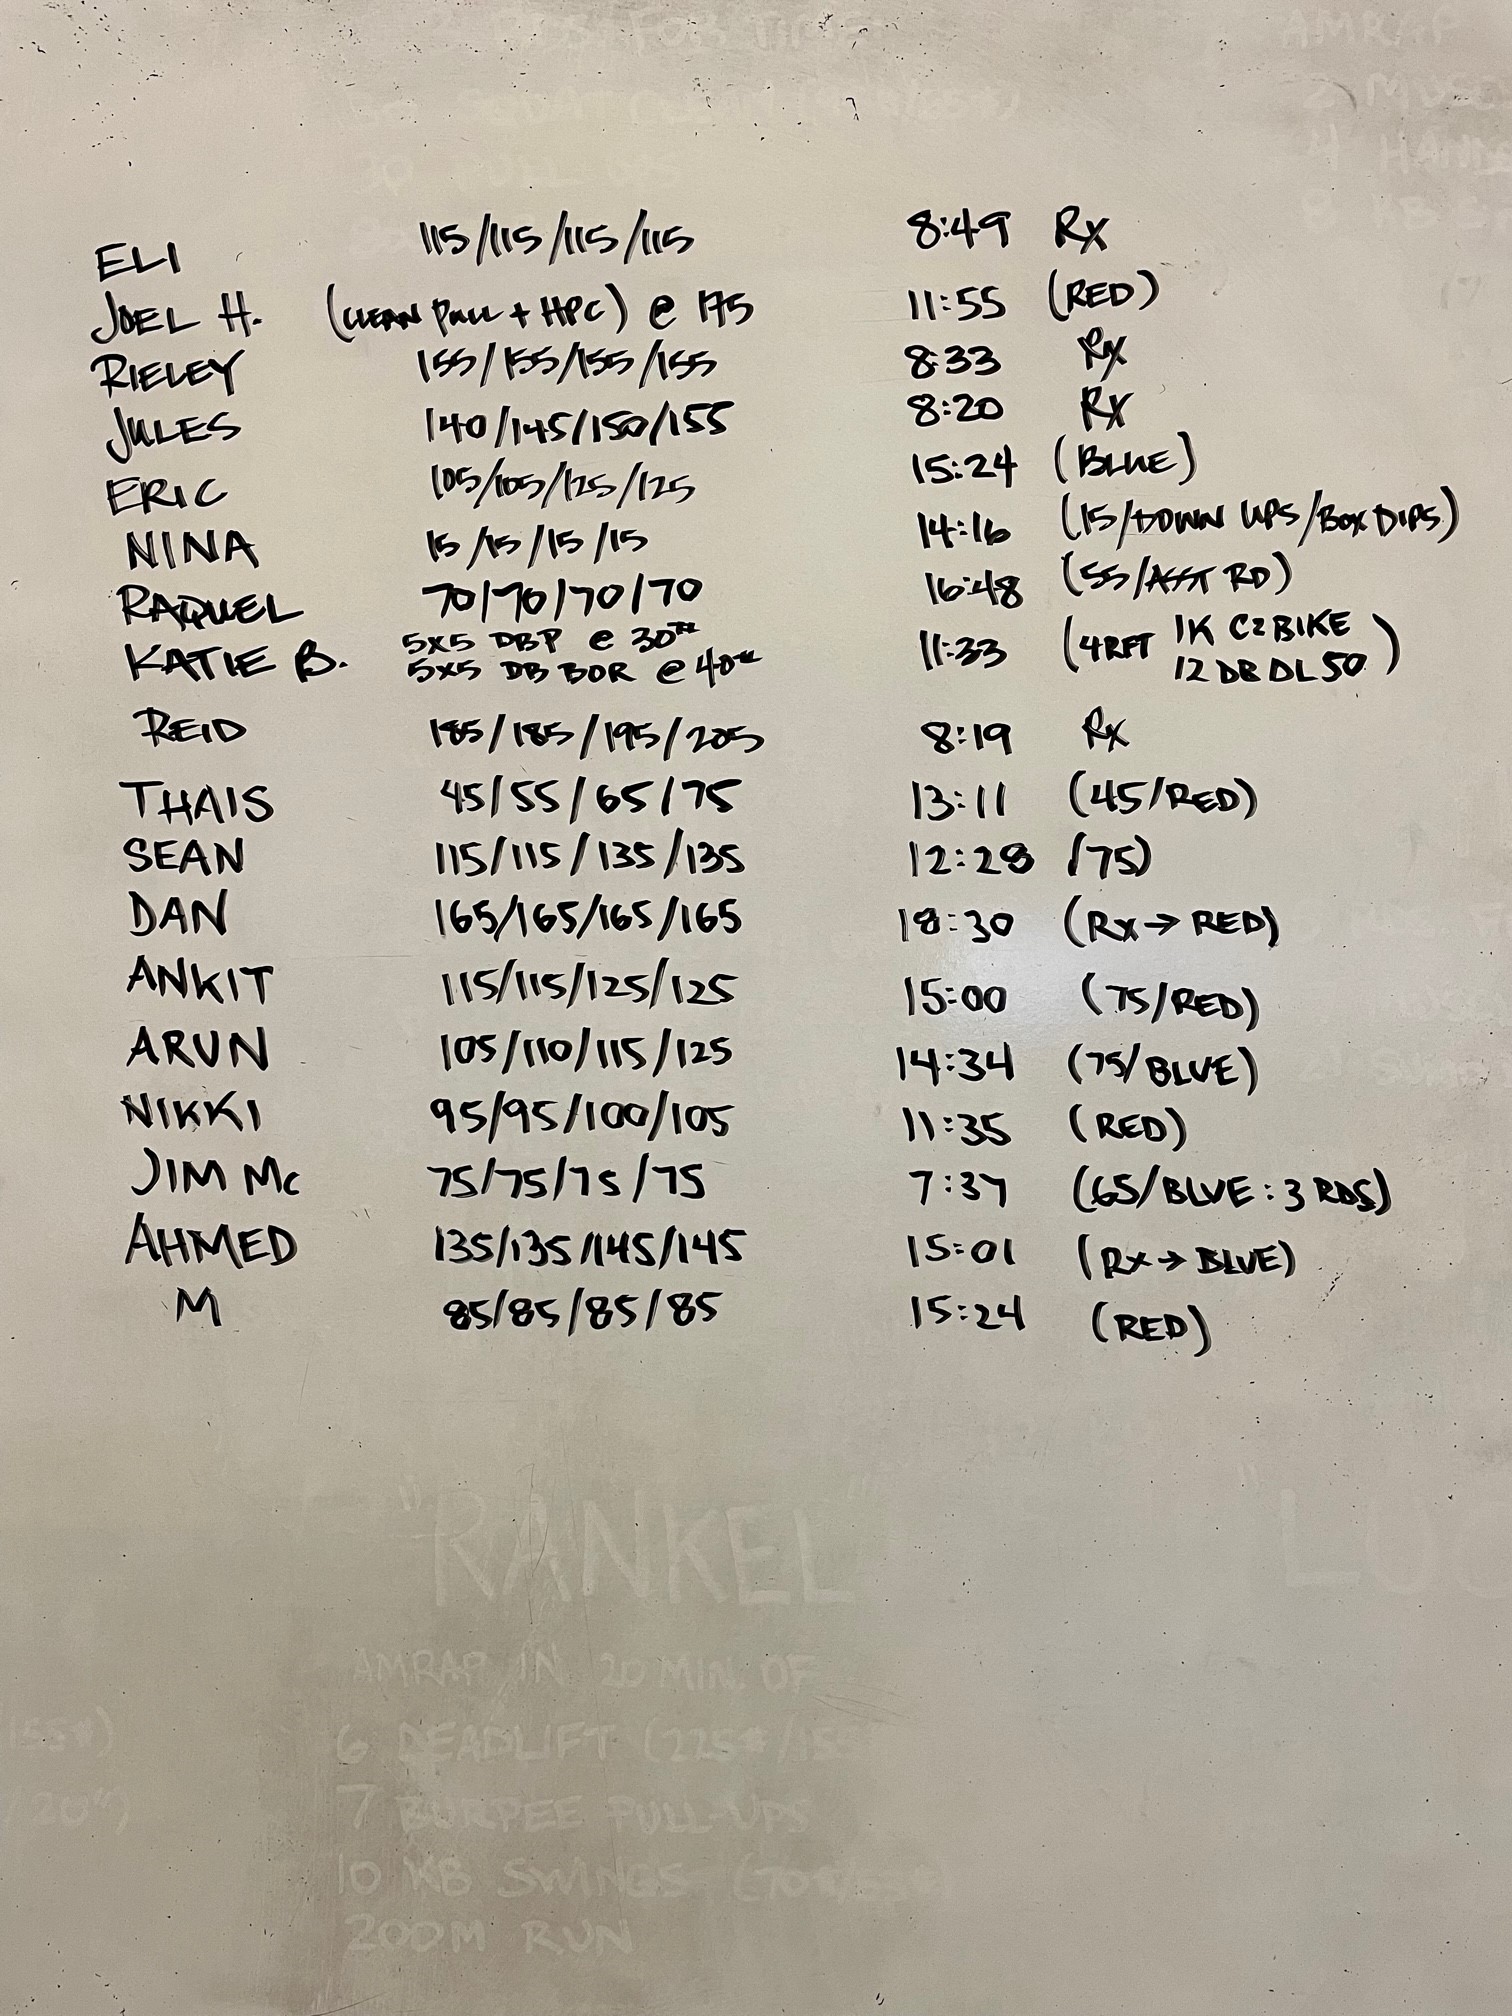 FOR TIME
AMRAP
PULL-UPS
4 HAND
ELI 115/115/115/115 8:49 Rx
JOEL H. (CLEAN PULL + HPC) @ 175 11:55 (RED)
RIELEY 155/155/155/155 8:33 Rx
JULES 140/145/150/155 8:20 Rx
ERIC 105/105/125/125 15:24 (BLUE)
NINA 15/15/15/15 14:16 (15/DOWN UPS/BOX DIPS)
RAQUEL 70/70/70/70 16:48 (55/ASST RD)
KATIE B. 5x5 DBP @ 30# 11:33 (4RFT 1K C2 BIKE
5x5 DB BOR @ 40# 12 DB DL 50)
REID 185/185/195/205 8:19 Rx
THAIS 45/55/65/75 13:11 (45/RED)
SEAN 115/115/135/135 12:28 (75)
DAN 165/165/165/165 18:30 (Rx→RED)
ANKIT 115/115/125/125 15:00 (75/RED)
ARUN 105/110/115/125 14:34 (75/BLUE)
NIKKI 95/95/100/105 11:35 (RED)
JIM Mc 75/75/75/75 7:37 (65/BLUE: 3 RDS)
AHMED 135/135/145/145 15:01 (Rx→BLUE)
M 85/85/85/85 15:24 (RED)
"RANKEL" "LUC
AMRAP IN 20 MIN. OF
155#) 6 DEADLIFT (225#/155
/20") 7 BURPEE PULL-UPS
10 KB SWINGS
200M RUN